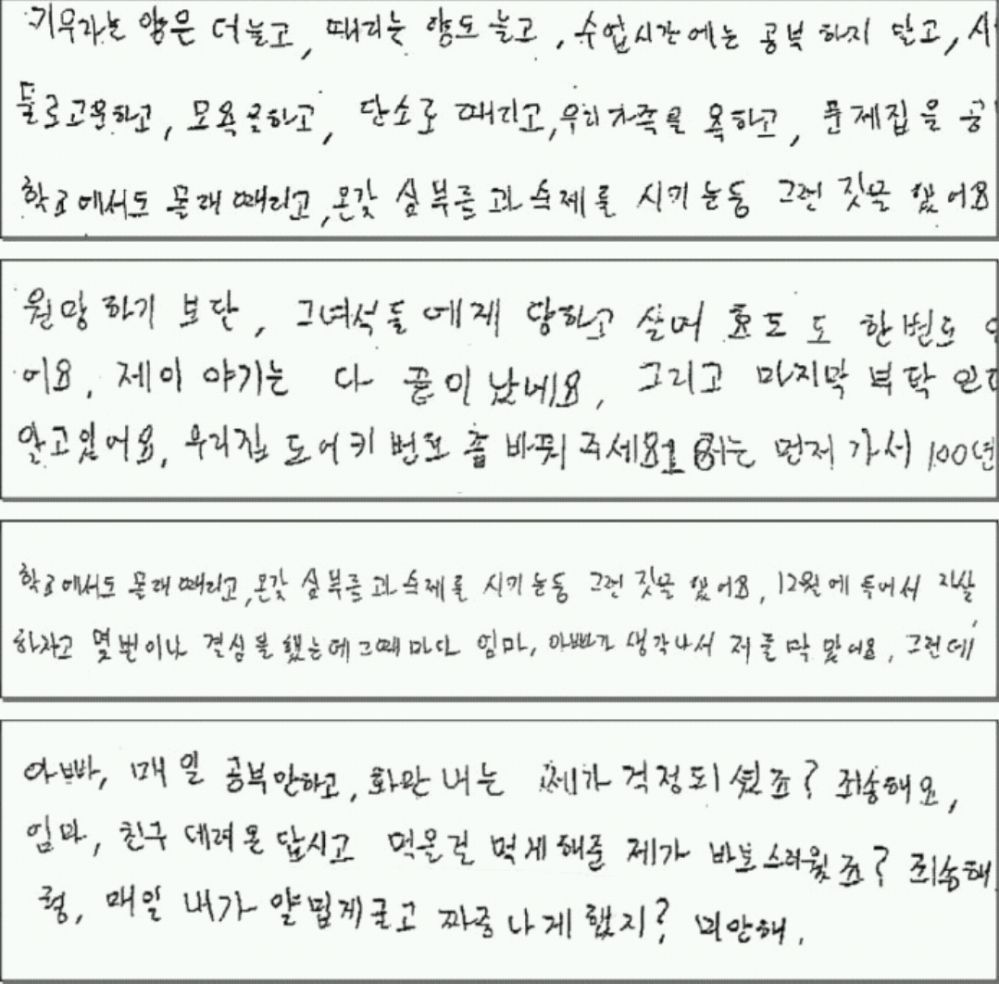 키우라는 양은 더 늘고, 때리는 양도 늘고, 수업시간에는 공부 하지 말고, 시
물로고문하고, 모욕을하고, 단소로 때리고, 우리가족을 욕하고, 문제집을 공
학교에서도 몰래 때리고, 온갖 심부름과 숙제를 시키는등 그런 짓을 했어요
원망하기 보단, 그녀석들에게 당하고 살며 효도도 한번도
어요, 제이야기는 다 끝이 났네요, 그리고 마지막 부탁인데
알고있어요, 우리집 도어키 번호 좀 바꿔주세요 저는 먼저 가서 100년
학교에서도 몰래 때리고, 온갖 심부름과 숙제를 시키는등 그런 짓을 했어요, 12월에 들어서 자살
하자고 몇번이나 결심을 했는데 그때마다 엄마, 아빠가 생각나서 저를 막았어요, 그런데
아빠, 매일 공부안하고, 화만 내는 제가 걱정되셨죠? 죄송해요,
엄마, 친구 데려온답시고 먹을걸 먹게해준 제가 바보스러웠죠? 죄송해
형, 매일 내가 얄밉게굴고 짜증나게했지? 미안해.